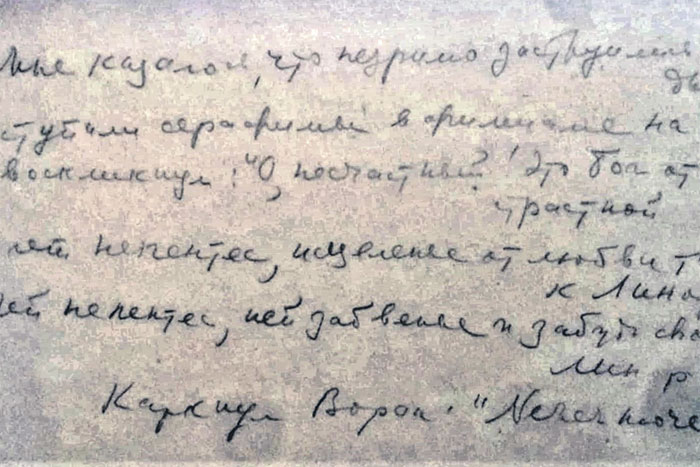 Мне казалось, что незримо заструились
ступили серафимы в фимиаме на
воскликнул: "О, несчастный! Это бог от
страстной
непентес, исцеленье от любви
к Лино
пей непентес, пей забвенье и забудь сво
Лин
Каркнул Ворон: "Nevermore